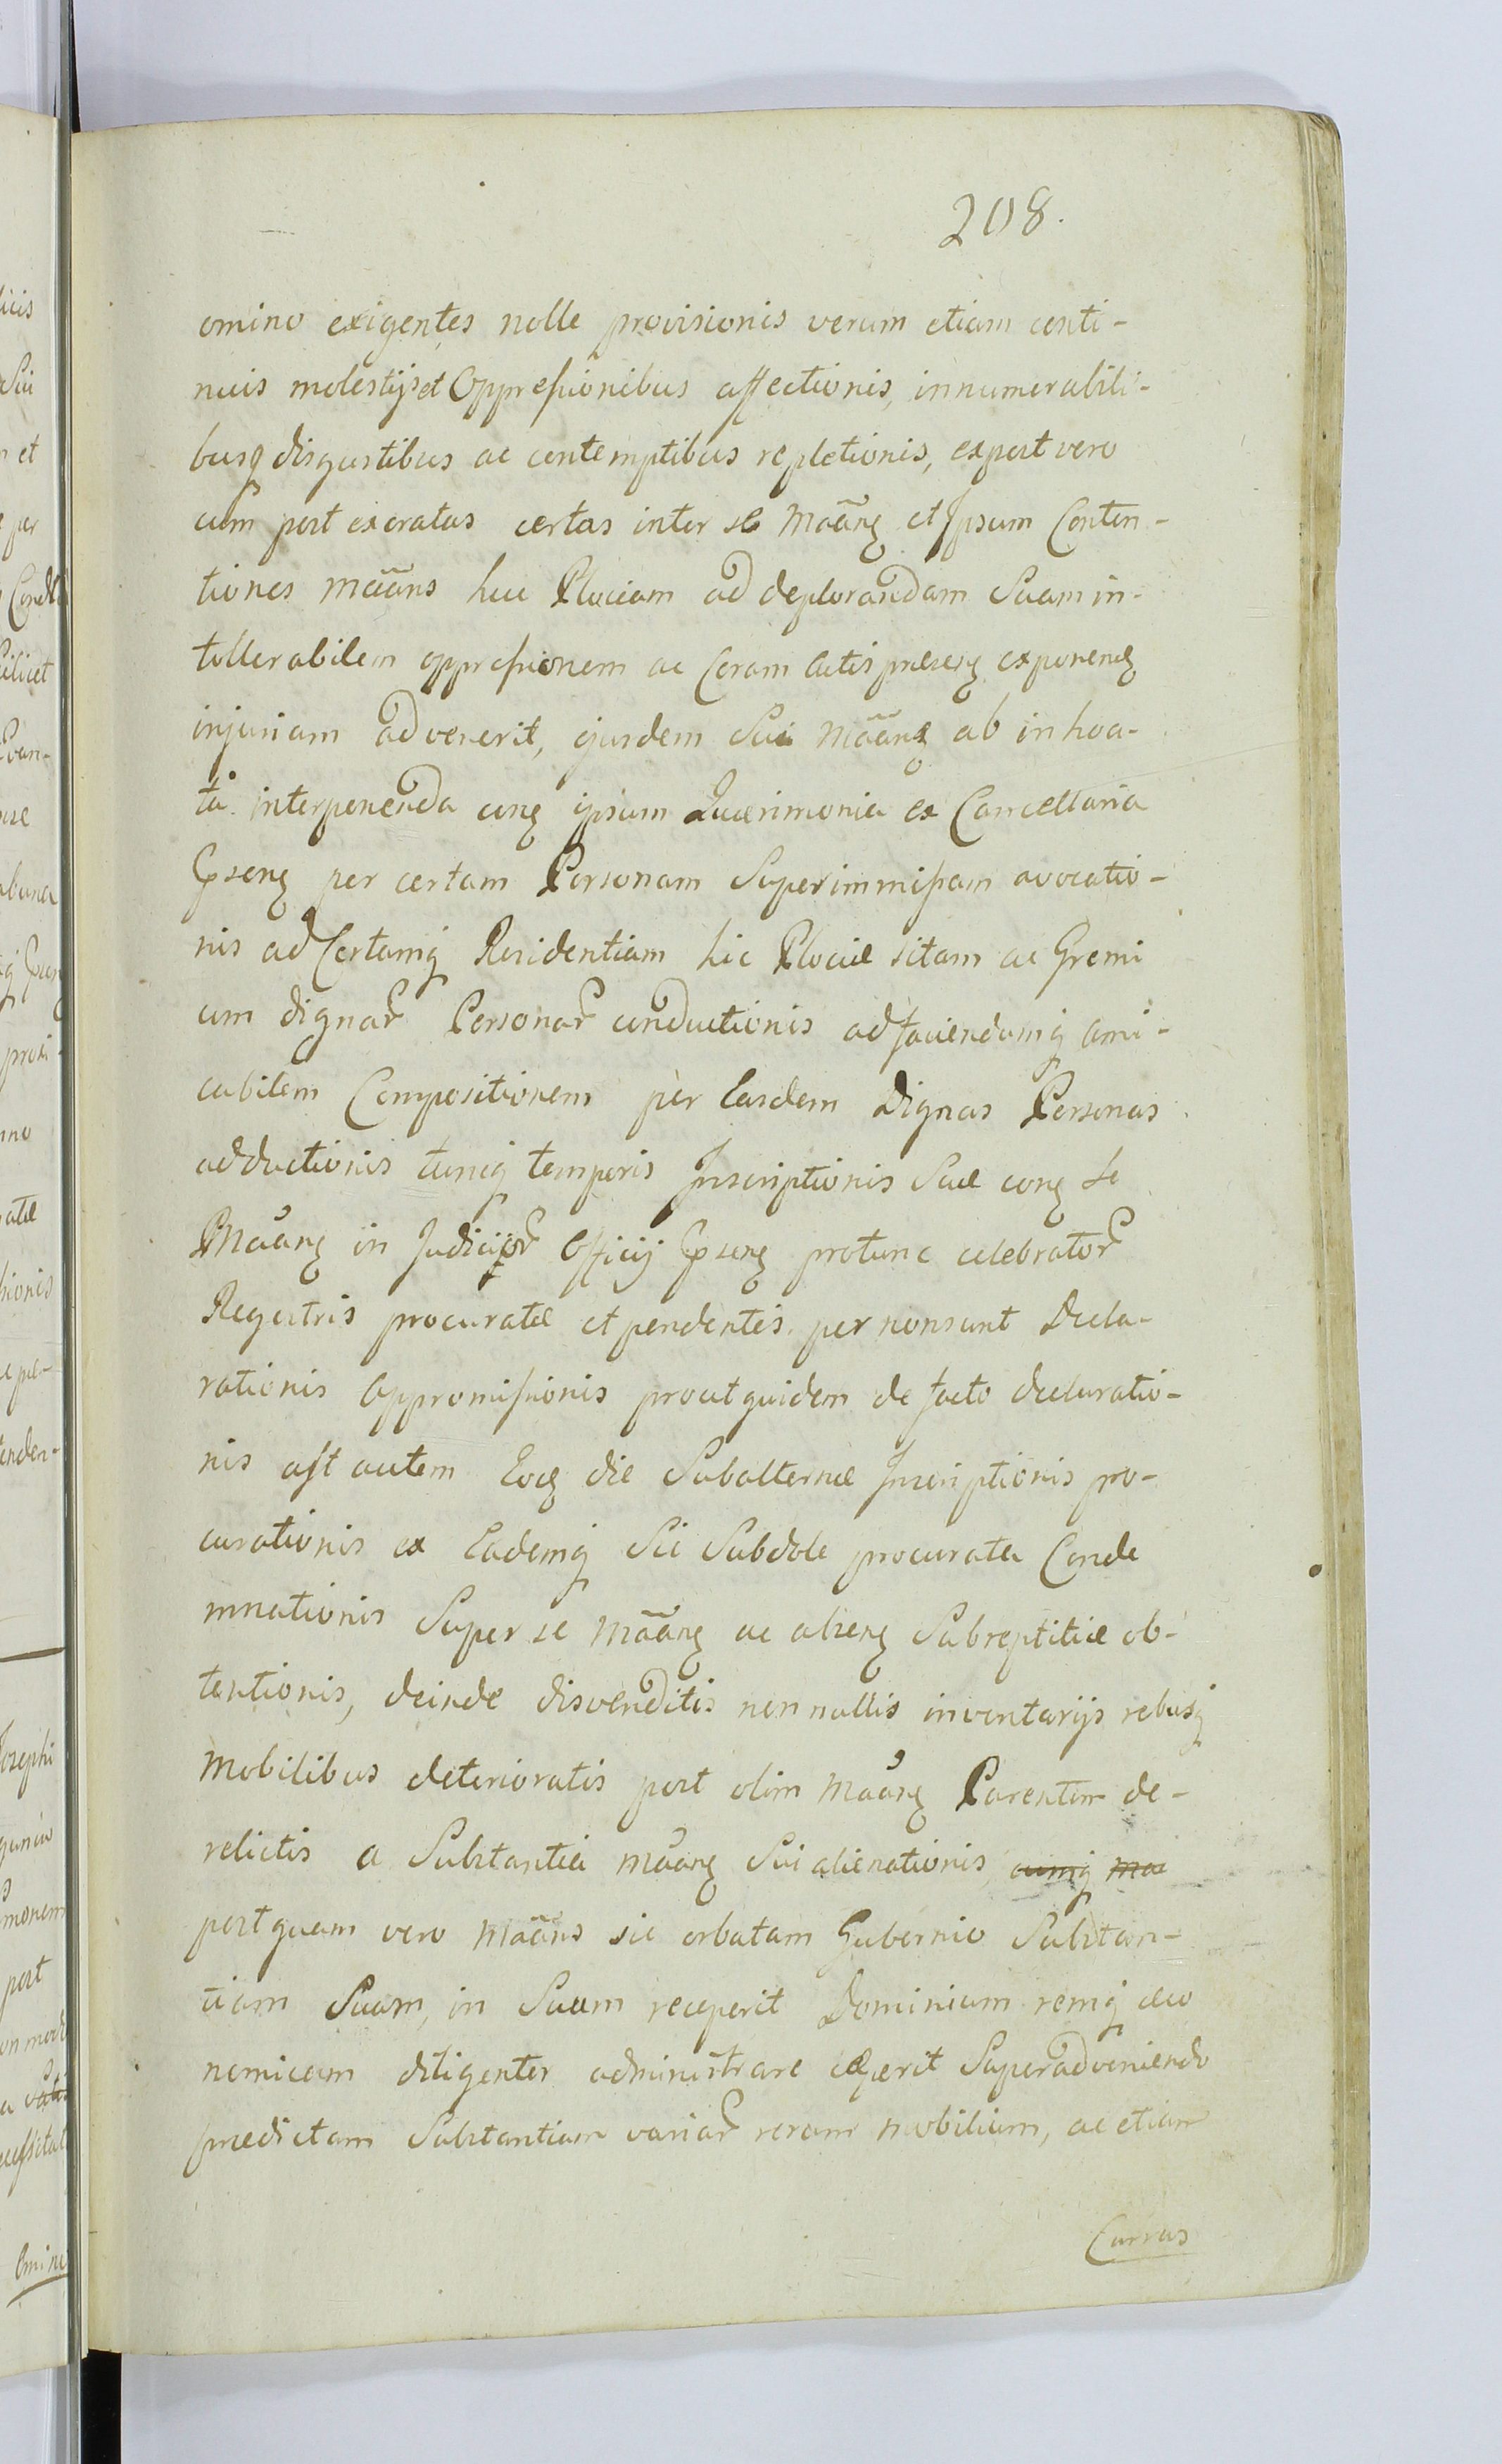 208.
omino exigentes nolle provisionis verum etiam conti-
nuis molestijs et Oppressionibus affectionis, innumerabili-
busq disgustibus ac contemptibus repletionis, expost vero
cum post exoratas certas inter se Mãang et Ipsum Conten-
tiones mããns huc Plociam ad deplorandam Suam in-
tollerabilem oppressionem ac Coram Actis præseng exponeng
injuriam advenerit, ejusdem Sui Mããng ab inhoa-
ta interponenda cong ipsum Quærimonia ex Cancellaria
Cpseng per certam Personam Superimmissam avocatio-
nis ad Certamq Residentiam hic Plociæ sitam ac Gremi
um dignar Personar conductionis ad faciendamq ami-
cabilem Compositionem per Easdem Dignas Personas
adductionis tuncq temporis Inscriptionis Suæ cong se
Mãang in Judicijor Officij Cpseng protunc celebrator
Regestris procuratæ et pendentis per non sunt Decla-
rationis appromissionis prout quidem de facto declaratio-
nis ast autem Eoq die Subalternæ Inscriptionis pro-
curationis ex Eademq Sic Subdole procurata Conde
mnationis Super se Mããng ac abseng Subreptitiæ ob-
tentionis, deinde disvenditis non nullis inventarijs rebusq
Mobilibus deterioratis post olim Mãang Parentem de-
relictis a Substantia Mãang Sui alienationis, cumq maa
postquam vero Mããns sic orbatam Gubernio Substan-
tiam Suam, in Suum receperit Dominium remq œco
nomicam diligenter administrare cæperit Superadveniendo
prædictam Substantiam variar rerum mobilium, ac etiam
Currus